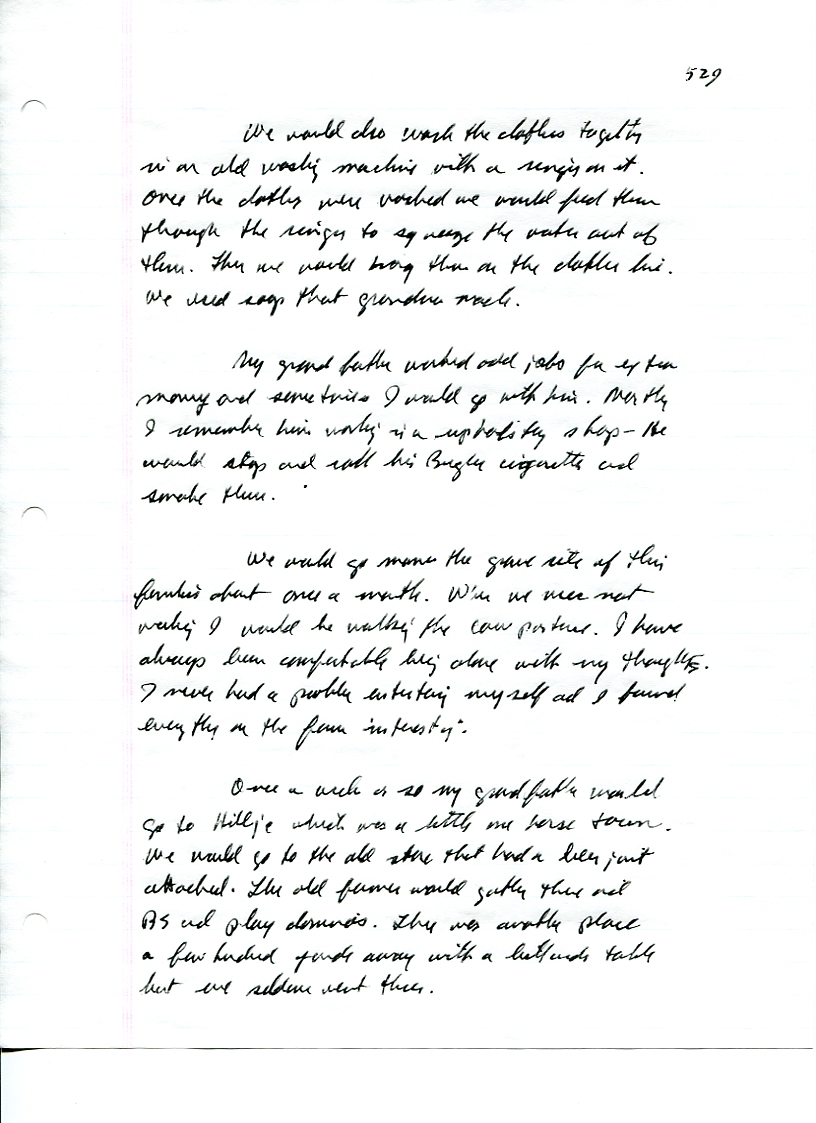 529
We would also wash the clothes together
in an old washing machine with a ringer on it.
Once the clothes were washed we would feed them
through the ringer to squeeze the water out of
them. Then we would hang them on the clothes line.
We used soap that grandma made.
My grandfather worked odd jobs for extra
money and sometimes I would go with him. Mostly
I remember him working in a upholstry shop - He
would stop and roll his Bugler cigarettes and
smoke them.
We would go the grave site of their
families about once a month. When we were not
working I would be walking the cow pasture. I have
always been comfortable being alone with my thoughts.
I never had a problem entertaing myself and I found
everything on the farm interesting.
Once a week or so my grandfather would
go to Hillje which was a little one horse town.
We would go to the old store that had a beer joint
attached. The old farmers would gather there and
BS and play dominos. There was another place
a few hundred yards away with a billards table
but we seldom went there.